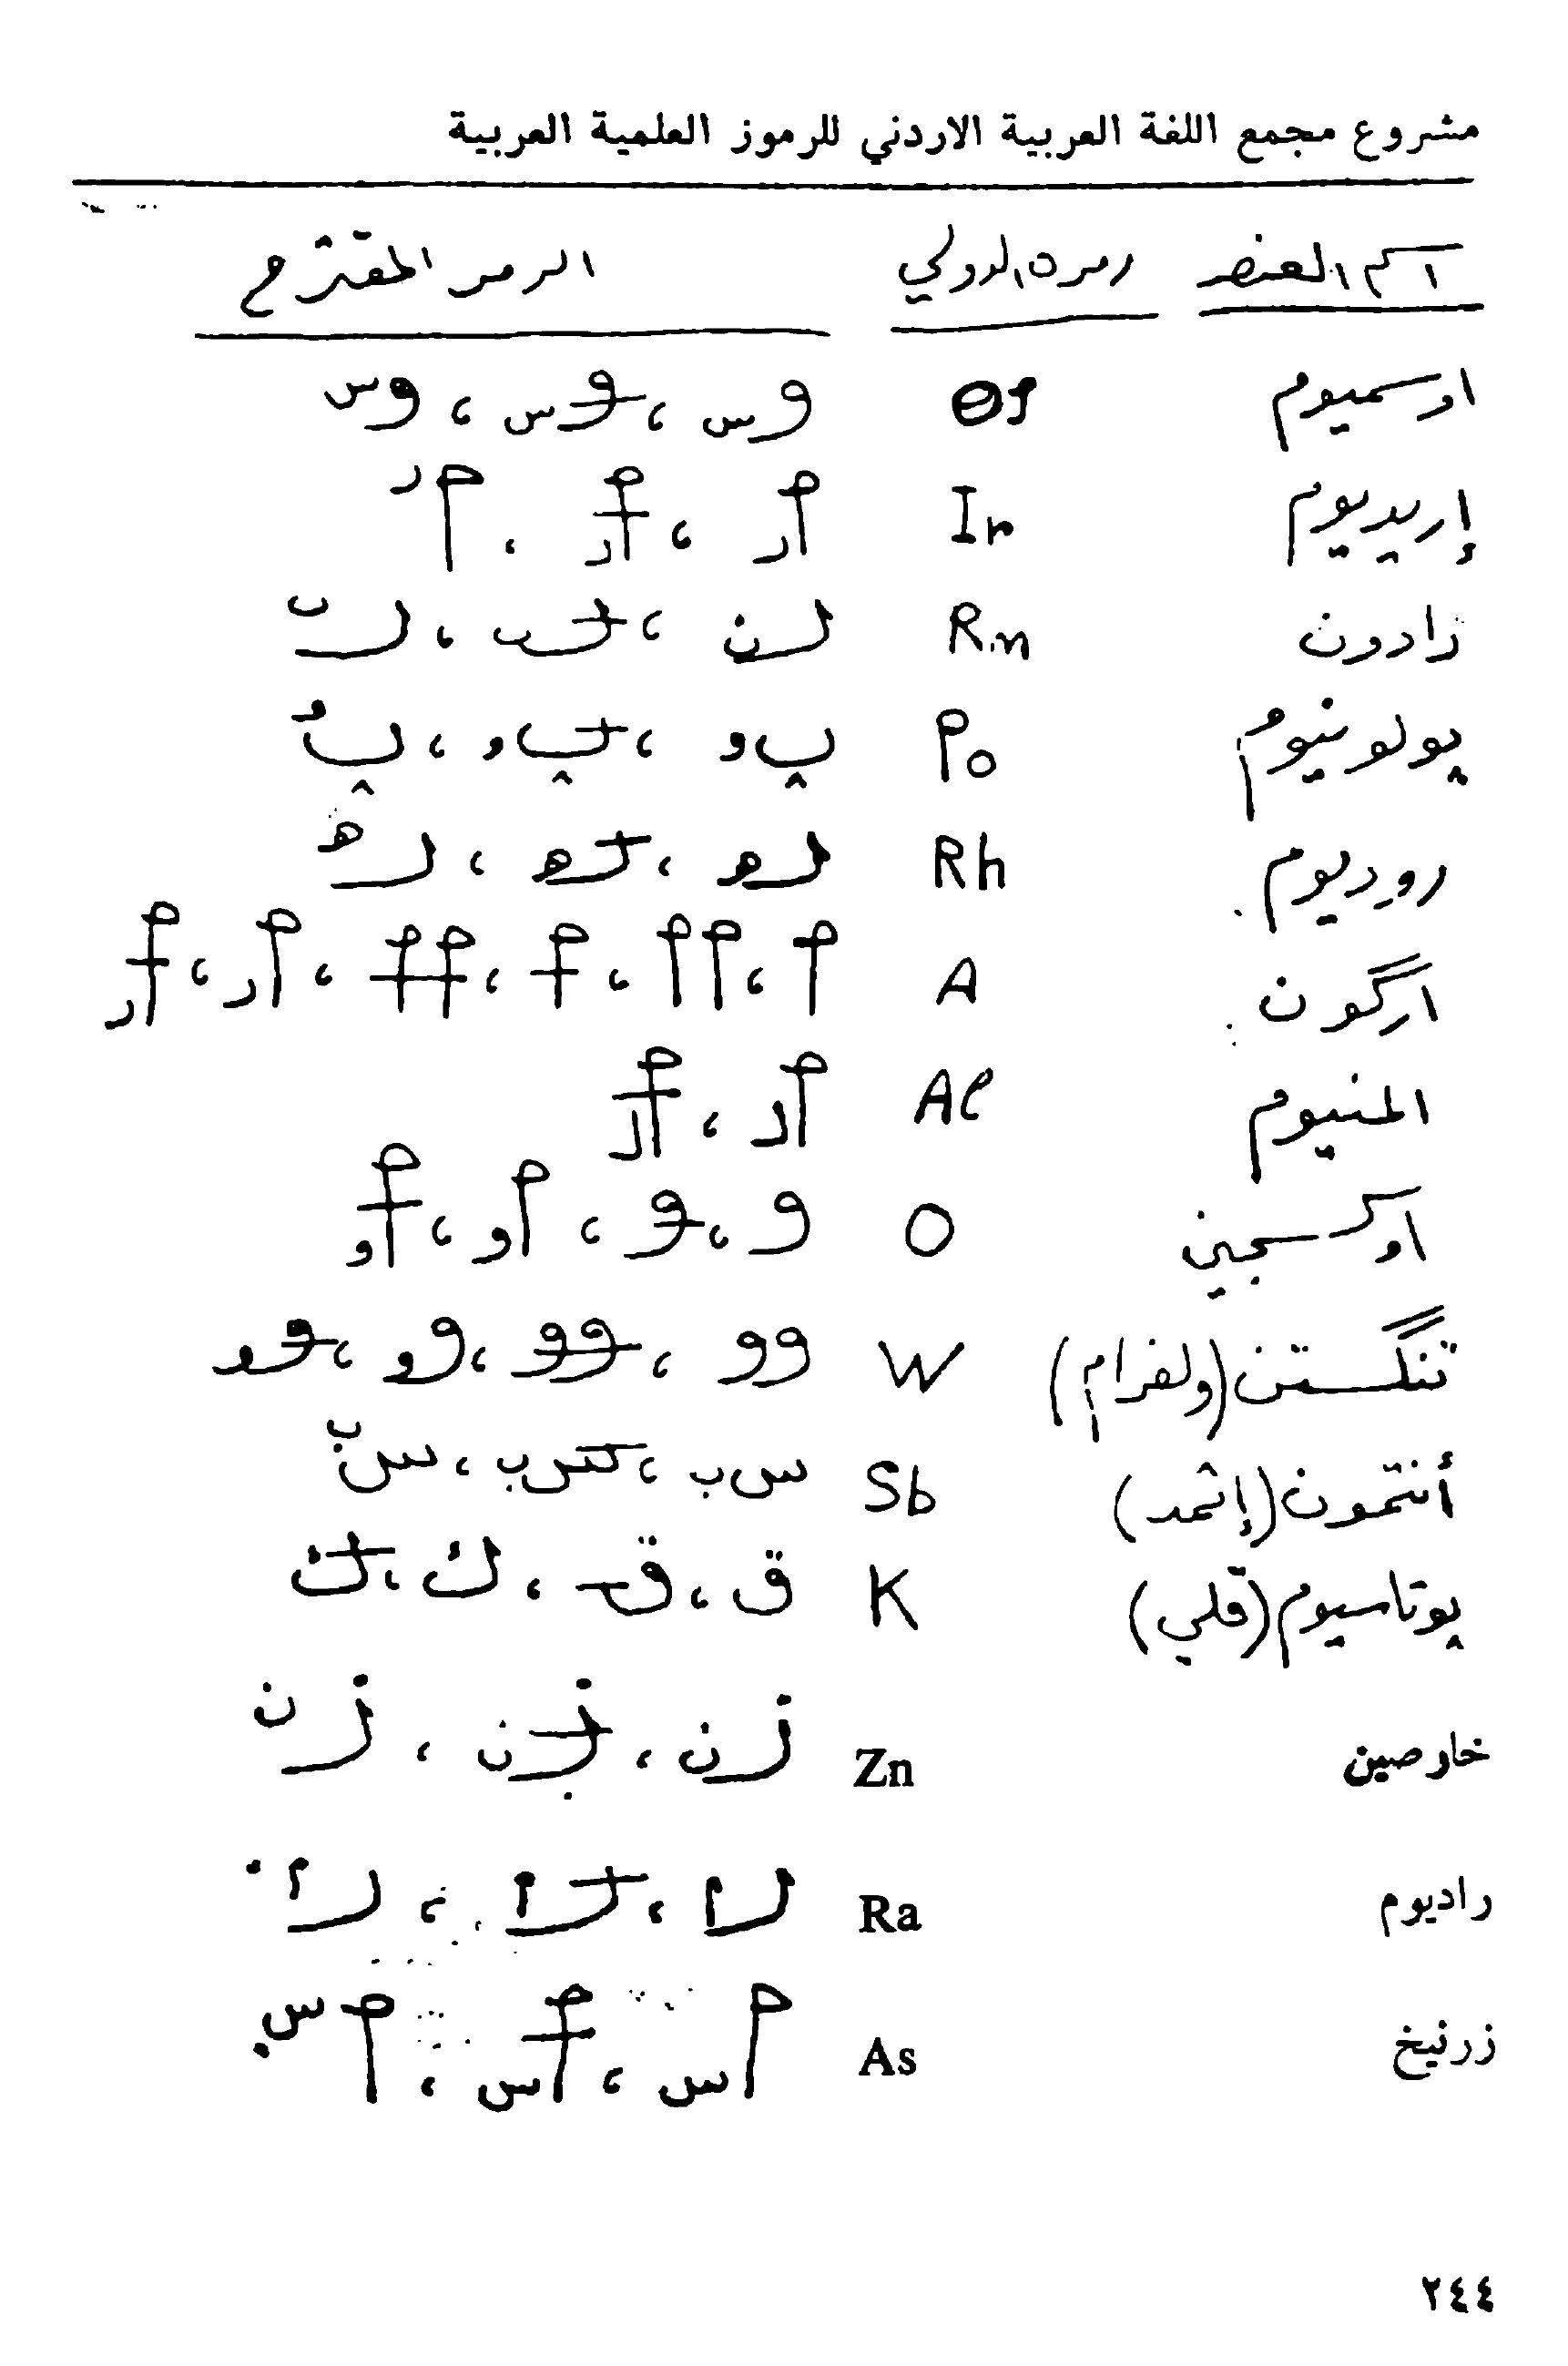 مشروع مجمع اللغة العربية الاردني للرموز العلمية العربية
اسم العنصر رمزه الدولي الرمز المقترح
اوسميوم Os وس ، وس ، وس
إريديوم Ir ار ، ار ، ار
رادون Rn رن ، رن ، رن
پولونيوم Po پو ، پو ، پو
روديوم Rh رهـ ، رهـ ، رهـ
ارگون A ا ، اا ، ا ، اا ، ار ، ار
المنيوم Al ال ، ال
اوكسجين O و ، و ، او ، او
تنگستن (ولفرام) W وو ، وو ، وو ، وو
أنتمون (إثمد) Sb سب ، سب ، سب
پوتاسيوم (قلي) K ق ، ق ، ك ، ك
خارصين Zn زن ، زن ، زن
راديوم Ra را ، را ، را
زرنيخ As اس ، اس ، اس
٢٤٤